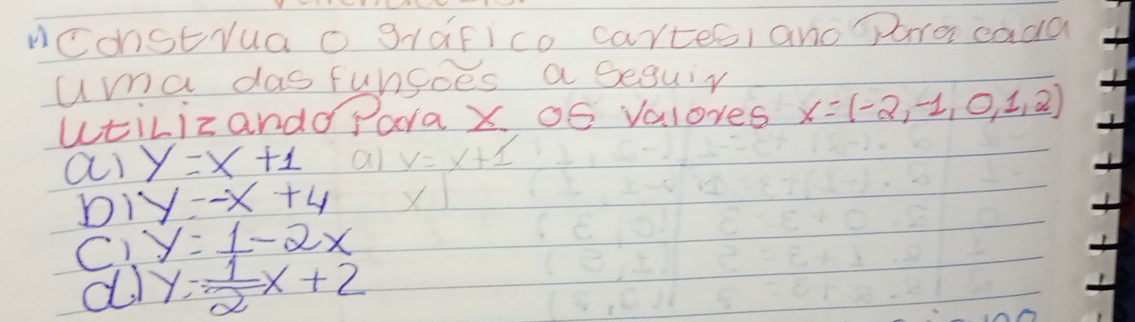 1) Construa o gráfico cartesiano para cada
uma das funções a seguir
utilizando para x os valores x=(-2,-1,0,1,2)
a) y=x+1 a) y=x+1
b) y=-x+4 x
c) y=1-2x
d) y=1/2x+2